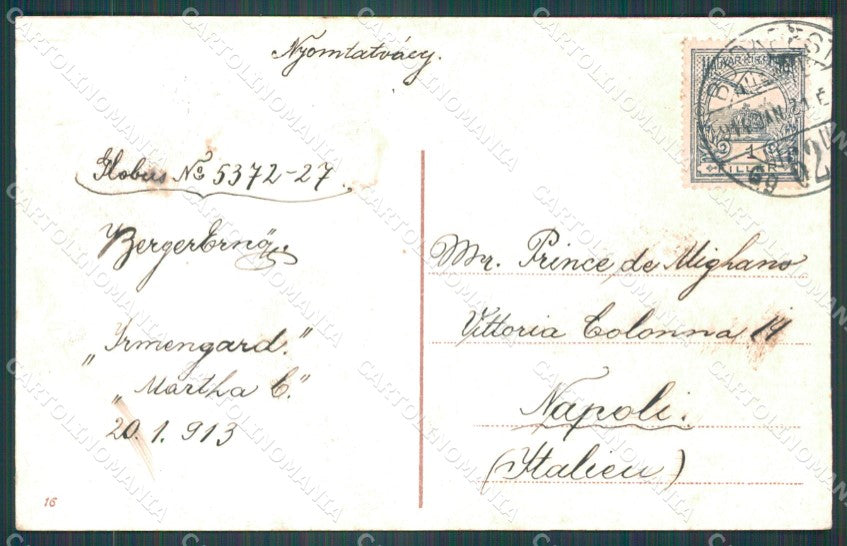 Nyomtatvány.
Globus No 5372-27
Berger Ernő
"Irmengard."
"Martha C."
20.1.913
16
MAGYAR KIR
1
FILLÉR
BUDAPEST
Mr. Prince de Mighano
Vittoria Colonna 14
Napoli.
(Italien)
CARTOLINOMANIA